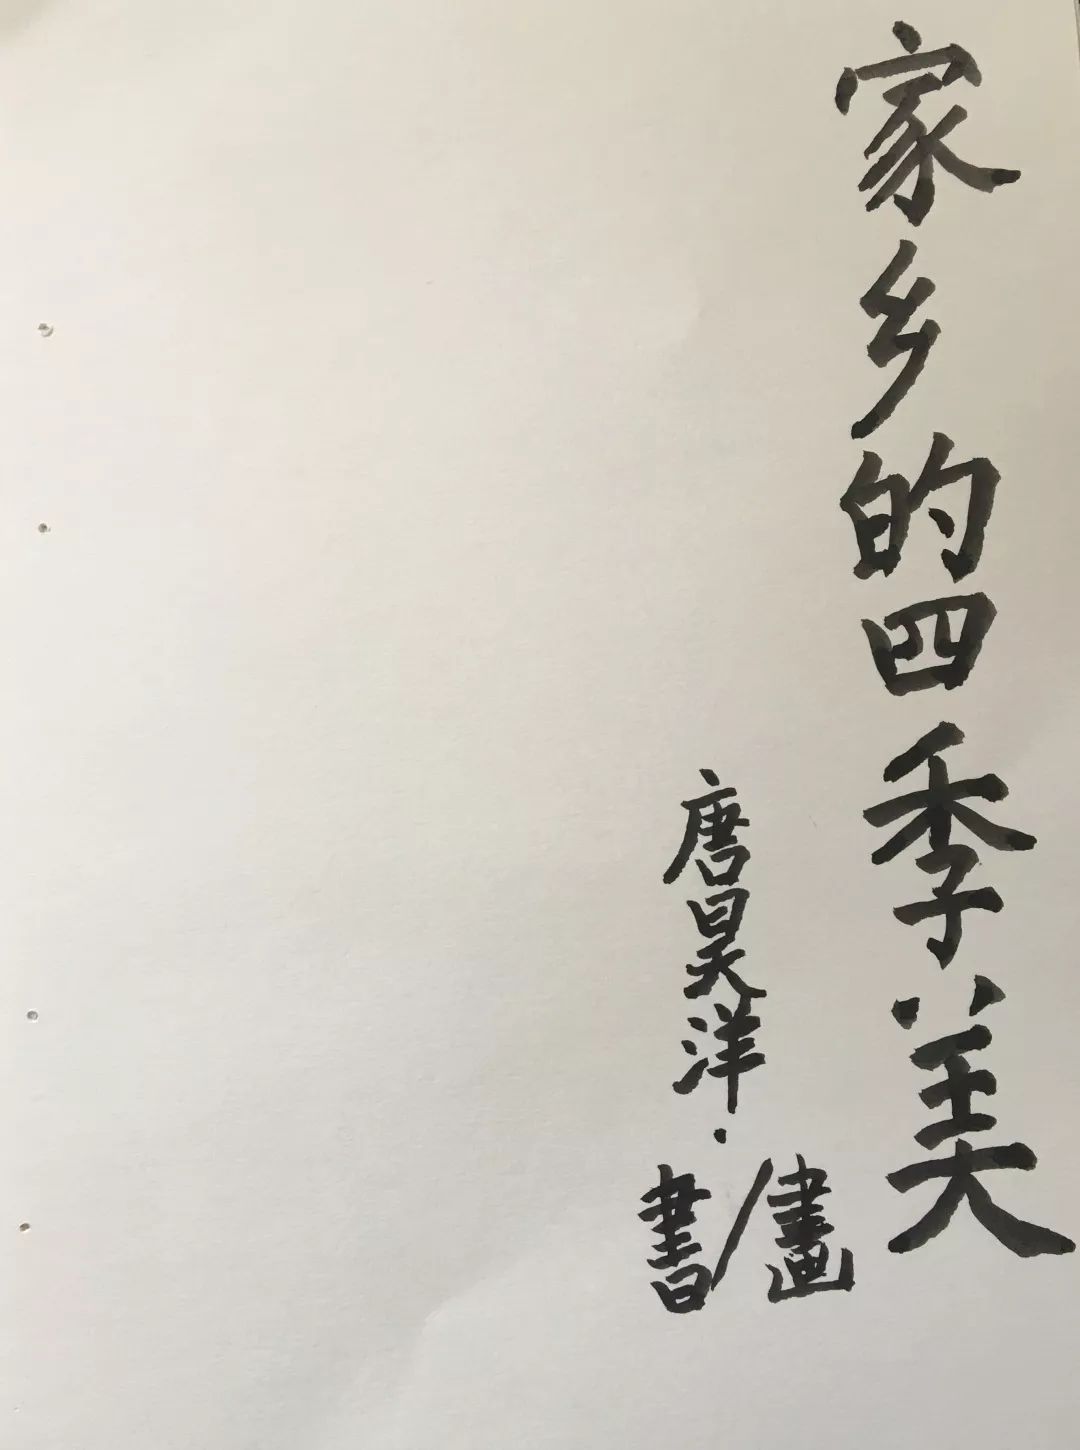 家乡的四季美
唐昊洋·
書/畫